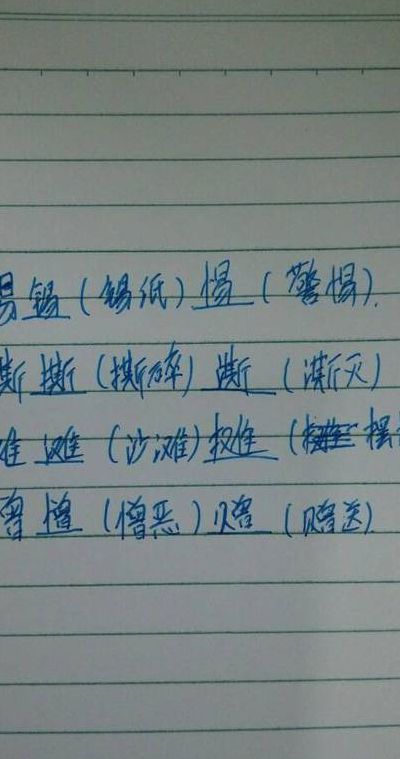 易 锡 (锡纸) 惕 (警惕).
斯 撕 (撕碎) 澌 (澌灭)
难 滩 (沙滩) 摊 (摆
曾 憎 (憎恶) 赠 (赠送)